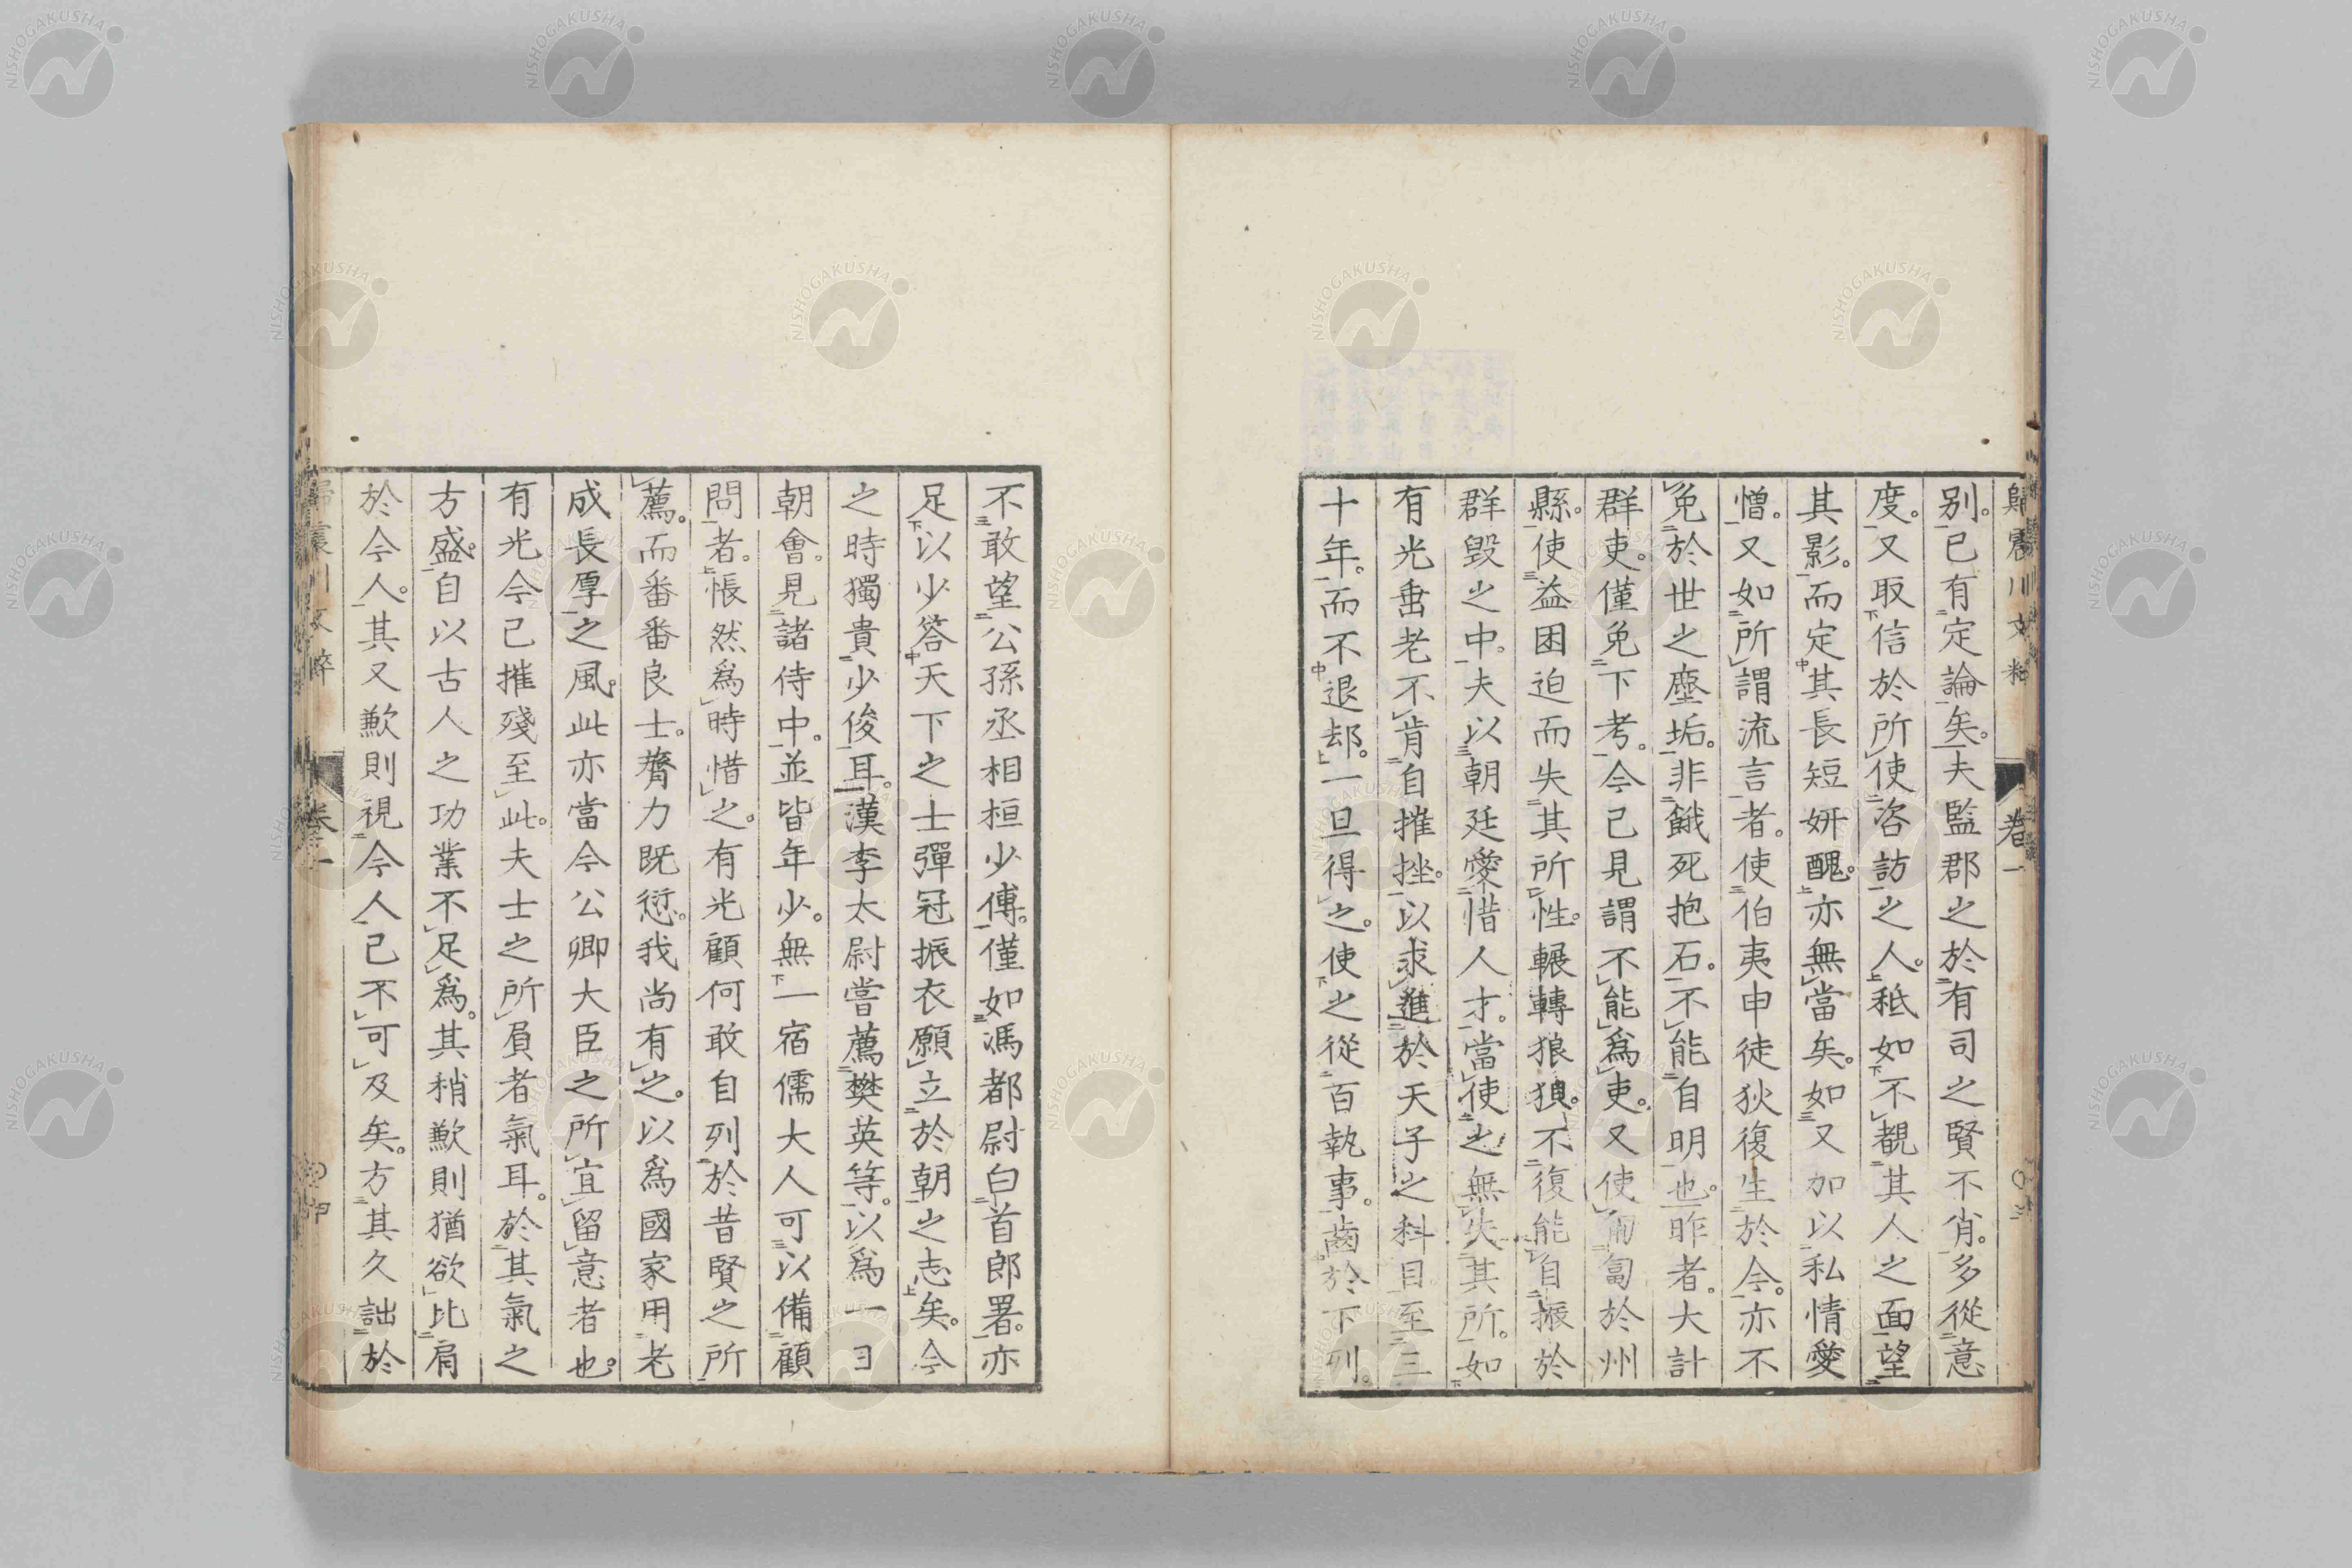 歸震川文粹 卷一
別。已有定論矣。夫監郡之於有司之賢不肖。多從意
度。又取信於所使咨訪之人。秪如不覩其人之面望
其影。而定其長短妍醜。亦無當矣。如又加以私情愛
憎。又如所謂流言者。使伯夷申徒狄復生於今。亦不
免於世之塵垢。非餓死抱石。不能自明也。昨者。大計
群吏。僅免下考。今已見謂不能爲吏。又使匍匐於州
縣。使益困迫而失其所性。輾轉狼狽。不復能自振於
群毀之中。夫以朝廷愛惜人才。當使之無失其所。如
有光垂老不肯自摧挫。以求進於天子之科目至三
十年。而不退却。一旦得之。使之從百執事。齒於下列。
不敢望公孫丞相桓少傅。僅如馮都尉白首郎署。亦
足以少答天下之士彈冠振衣願立於朝之志矣。今
之時獨貴少俊耳。漢李太尉嘗薦樊英等。以爲一日
朝會。見諸侍中。並皆年少。無一宿儒大人可以備顧
問者。悵然爲時惜之。有光顧何敢自列於昔賢之所
薦。而番番良士。膂力既愆。我尚有之。以爲國家用老
成長厚之風。此亦當今公卿大臣之所宜留意者也。
有光今已摧殘至此。夫士之所負者氣耳。於其氣之
方盛。自以古人之功業不足爲。其稍歉則猶欲比肩
於今人。其又歉則視今人已不可及矣。方其久詘於
卷一